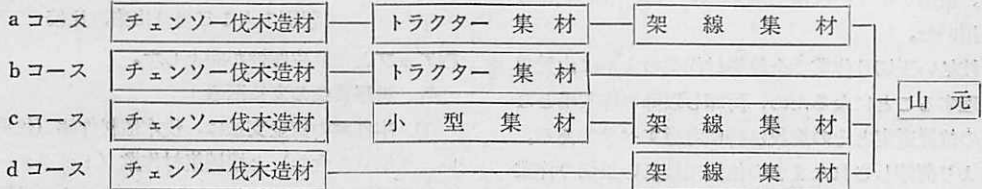 aコース チェンソー伐木造材 トラクター 集材 架線集材
bコース チェンソー伐木造材 トラクター 集材
山元
cコース チェンソー伐木造材 小型集材 架線集材
dコース チェンソー伐木造材 架線集材